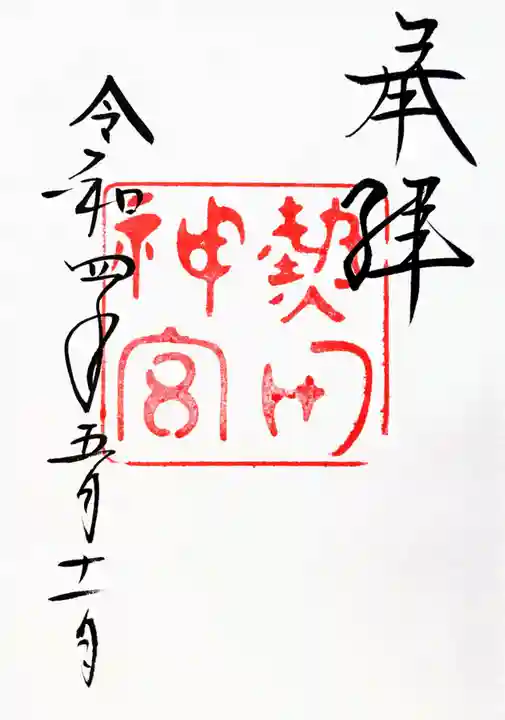 奉拝
熱田
神宮
令和四年五月十一日